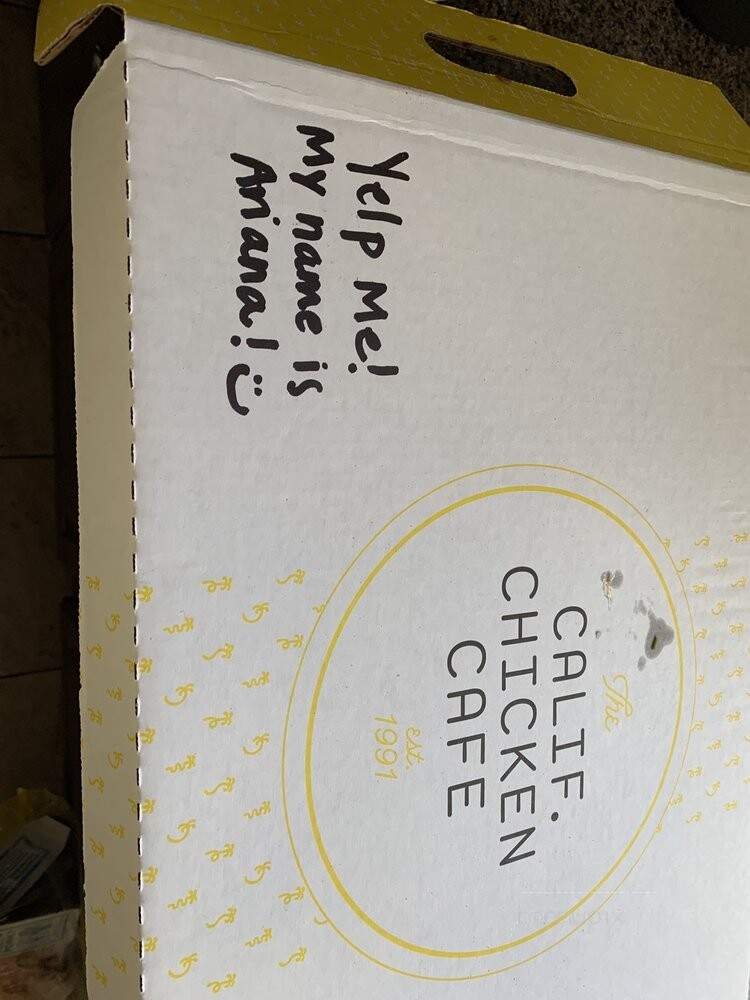 Yelp Me!
My name is
Ariana! :)
The
CALIF.
CHICKEN
CAFE
est.
1991